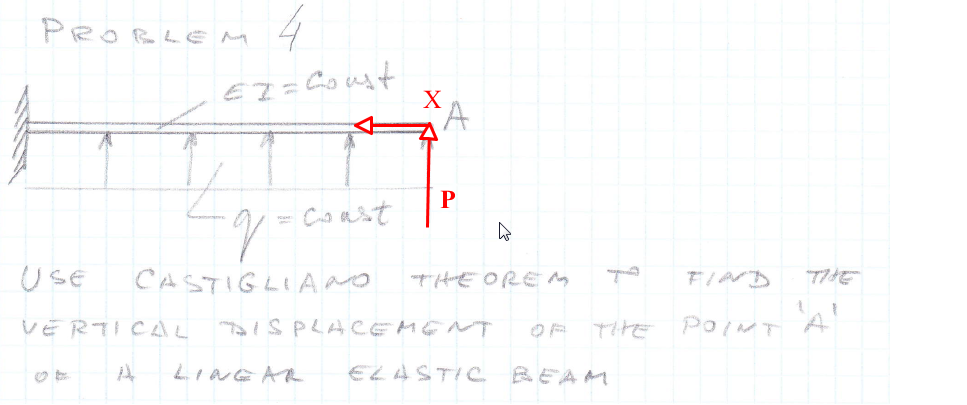 PROBLEM 4
EI = Const
X
A
P
q = const
USE CASTIGLIANO THEOREM TO FIND THE
VERTICAL DISPLACEMENT OF THE POINT 'A'
OF A LINEAR ELASTIC BEAM